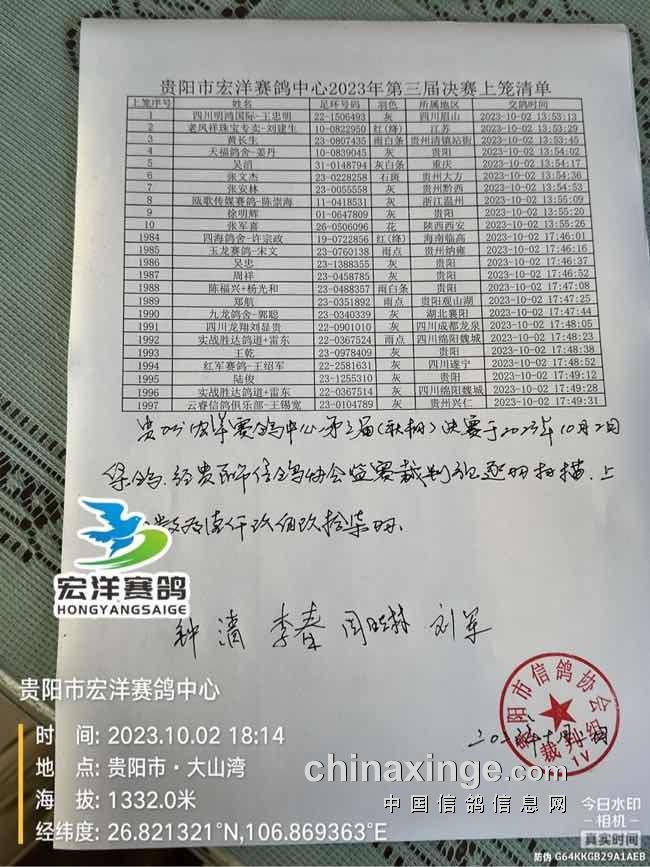 贵阳市宏洋赛鸽中心2023年第三届决赛上笼清单
上笼序号 姓名 足环号码 羽色 所属地区 交鸽时间
1 四川明鸿国际-王忠明 22-1506493 灰 四川眉山 2023-10-02 13:53:13
2 老凤祥珠宝专卖-刘建生 10-0822950 红(绛) 江苏 2023-10-02 13:53:29
3 黄长生 23-0807435 雨白条 贵州清镇站街 2023-10-02 13:53:45
4 天福鸽舍-姜丹 10-0839045 灰 贵阳 2023-10-02 13:54:02
5 吴消 31-0148794 灰白条 重庆 2023-10-02 13:54:17
6 张文杰 23-0228258 石斑 贵州大方 2023-10-02 13:54:36
7 张安林 23-0055558 灰 贵州黔西 2023-10-02 13:54:53
8 瓯歌传媒赛鸽-陈崇海 11-0418531 灰 浙江温州 2023-10-02 13:55:09
9 徐明辉 01-0647809 灰 贵阳 2023-10-02 13:55:20
10 张军喜 26-0506096 花 陕西西安 2023-10-02 13:55:26
1984 四海鸽舍-许宗政 19-0722856 红(绛) 海南临高 2023-10-02 17:46:01
1985 玉龙赛鸽-宋文 23-0760138 雨点 贵州纳雍 2023-10-02 17:46:16
1986 吴忠 23-1388355 灰 贵阳 2023-10-02 17:46:37
1987 周祥 23-0458785 灰 贵阳 2023-10-02 17:46:52
1988 陈福兴+杨光和 23-0488357 雨白条 贵阳 2023-10-02 17:47:08
1989 郑航 23-0351892 雨点 贵阳观山湖 2023-10-02 17:47:25
1990 九龙鸽舍-郭聪 23-0340339 灰 湖北襄阳 2023-10-02 17:47:44
1991 四川龙翔刘显贵 22-0901010 灰 四川成都龙泉 2023-10-02 17:48:05
1992 实战胜达鸽道+雷东 22-0367524 雨点 四川绵阳魏城 2023-10-02 17:48:23
1993 王乾 23-0978409 灰 贵阳 2023-10-02 17:48:38
1994 红军赛鸽-王绍军 22-2581631 灰 四川遂宁 2023-10-02 17:48:52
1995 陆俊 23-1255310 灰 贵阳 2023-10-02 17:49:12
1996 实战胜达鸽道+雷东 22-0367514 灰 四川绵阳魏城 2023-10-02 17:49:28
1997 云睿信鸽俱乐部-王锡宽 23-0104789 灰 贵州兴仁 2023-10-02 17:49:31
贵州宏洋赛鸽中心第三届(秋棚)决赛于2023年10月2日
集鸽.经贵阳市信鸽协会监赛裁判现场扫描.上
数为壹仟玖佰玖拾柒羽.
钟清 李春 周晓林 刘军
宏洋赛鸽
HONGYANGSAIGE
贵阳市信鸽协会
裁判组
贵阳市宏洋赛鸽中心
时 间: 2023.10.02 18:14
地 点: 贵阳市·大山湾
海 拔: 1332.0米
经纬度: 26.821321°N,106.869363°E
chinaxinge.com
中国信鸽信息网
今日水印
-相机-
真实时间
防伪 G64KKGB29A1AEB